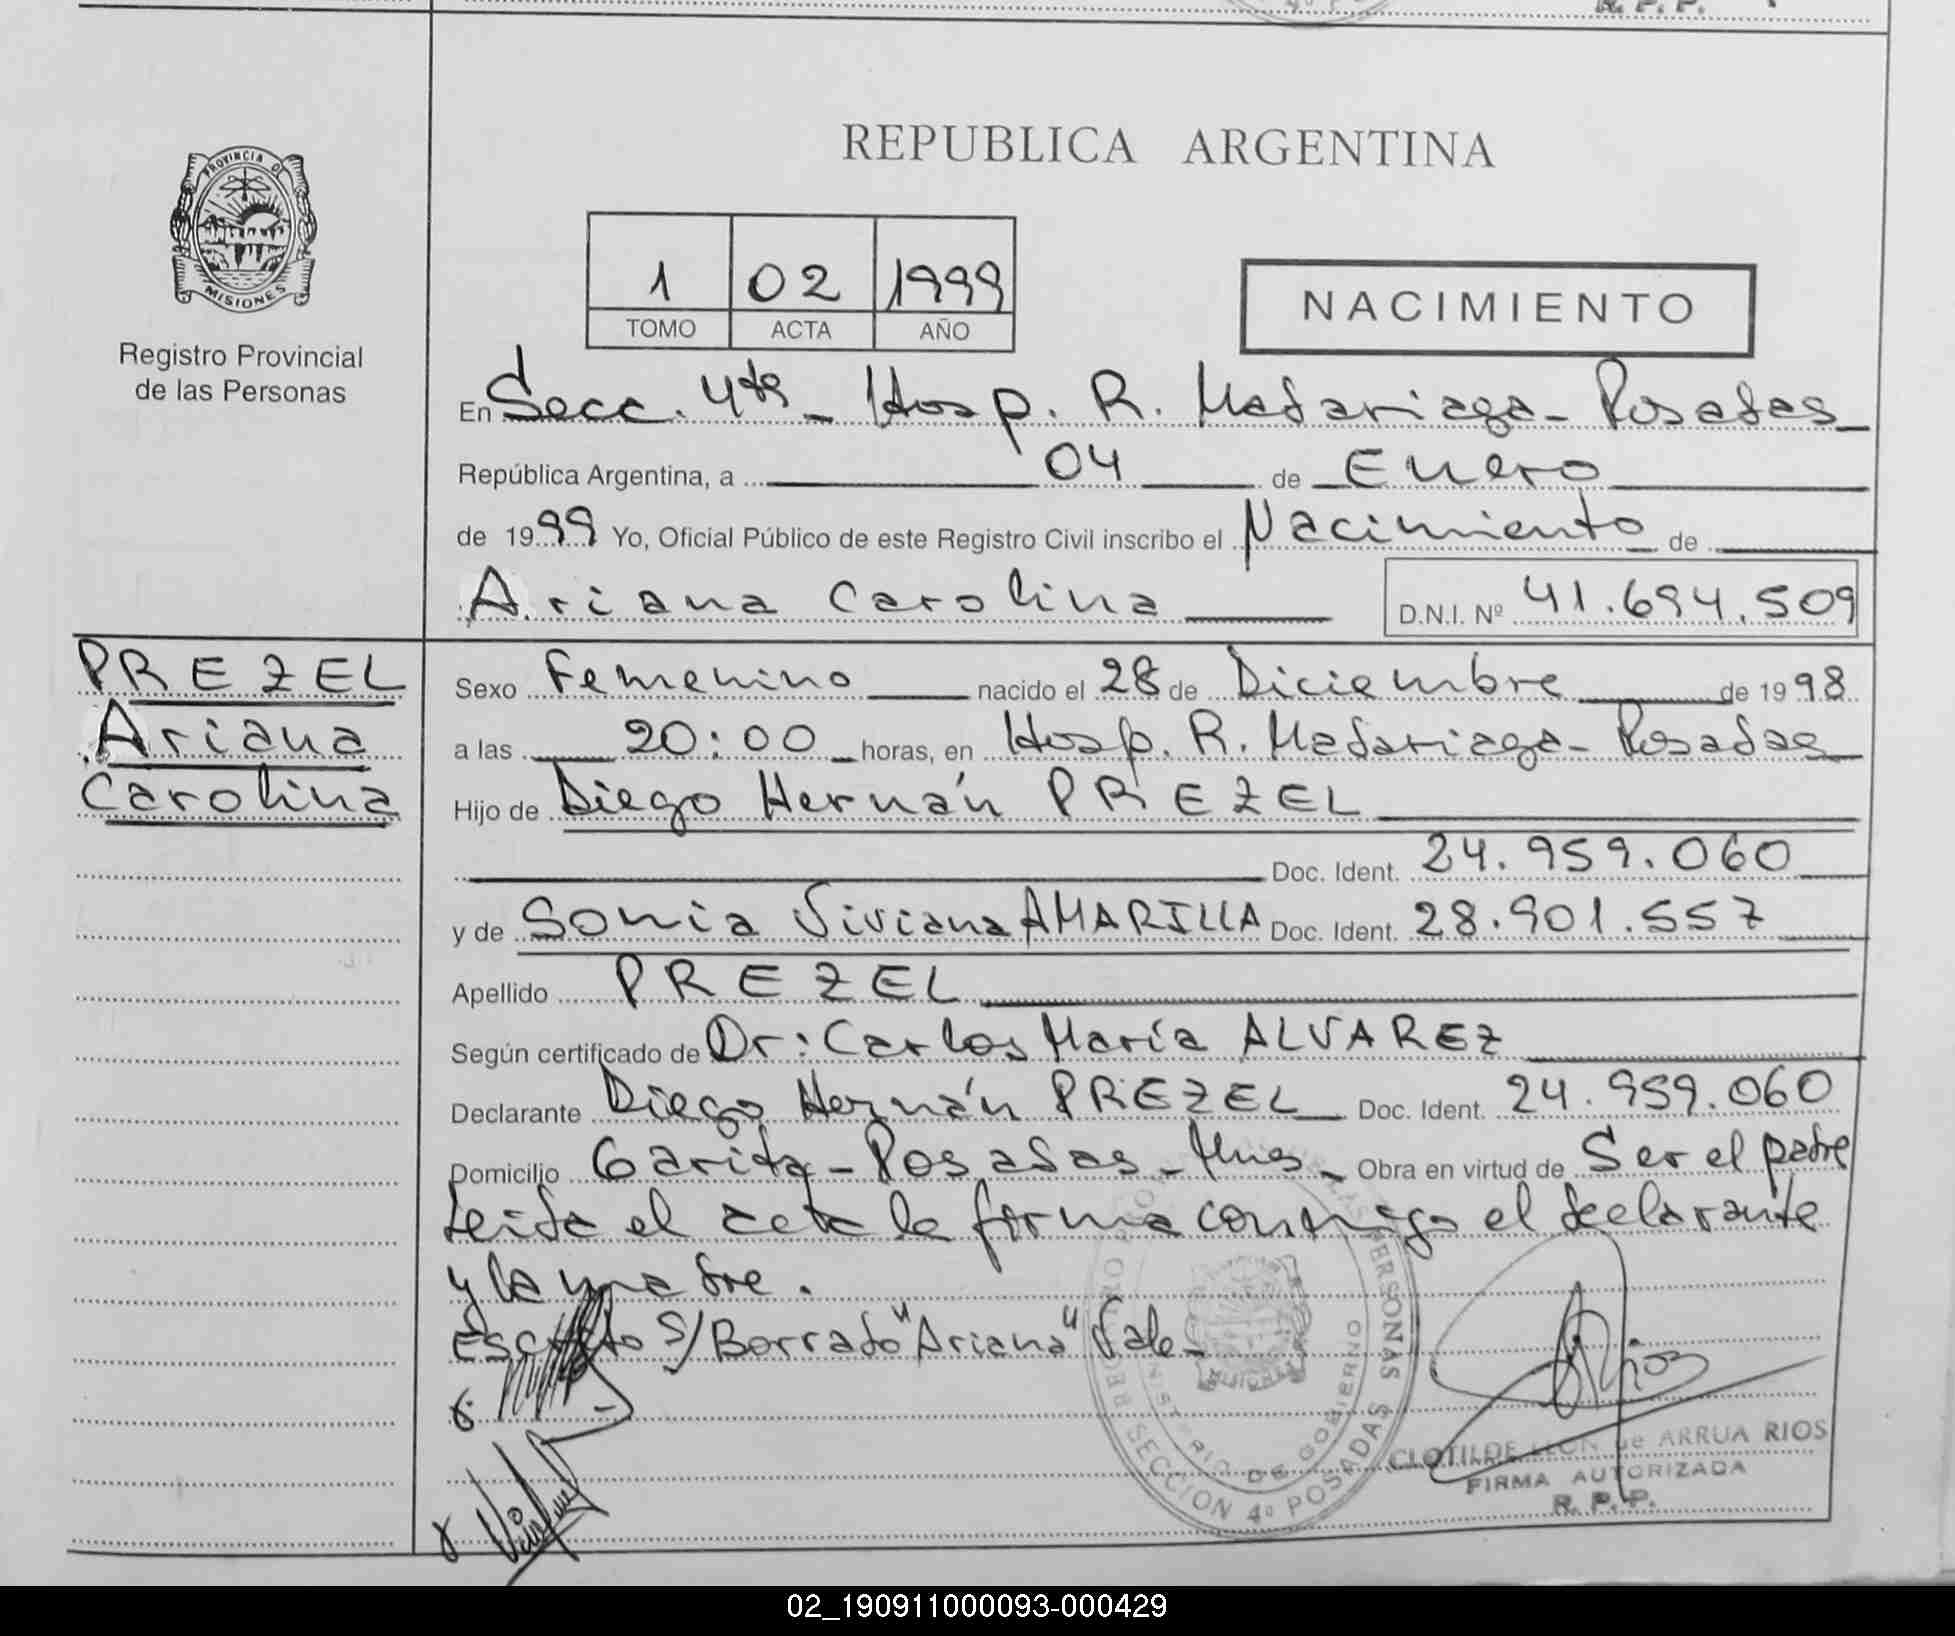 R. P. P.
REPUBLICA ARGENTINA
PROVINCIA DE
MISIONES
Registro Provincial
de las Personas
1 02 1999
TOMO ACTA AÑO
NACIMIENTO
En Secc. 4ta - Hosp. R. Madariaga - Posadas
República Argentina, a 04 de Enero
de 1999 Yo, Oficial Público de este Registro Civil inscribo el Nacimiento de
Ariana Carolina D.N.I. Nº 41.694.509
PREZEL
Ariana
Carolina
Sexo Femenino nacido el 28 de Diciembre de 1998
a las 20:00 horas, en Hosp. R. Madariaga - Posadas
Hijo de Diego Hernán PREZEL
Doc. Ident. 24.959.060
y de Sonia Viviana AMARILLA Doc. Ident. 28.901.557
Apellido PREZEL
Según certificado de Dr: Carlos María ALVAREZ
Declarante Diego Hernán PREZEL Doc. Ident. 24.959.060
Domicilio Garita - Posadas - Mnes - Obra en virtud de Ser el padre
Leida el acta la firma conmigo el declarante
y la madre.
Escrito s/Borrado "Ariana" Vale -
SECCION 4º POSADAS
PERSONAS
DE GOBIERNO
CLOTILDE LEON de ARRUA RIOS
FIRMA AUTORIZADA
R. P. P.
02_190911000093-000429